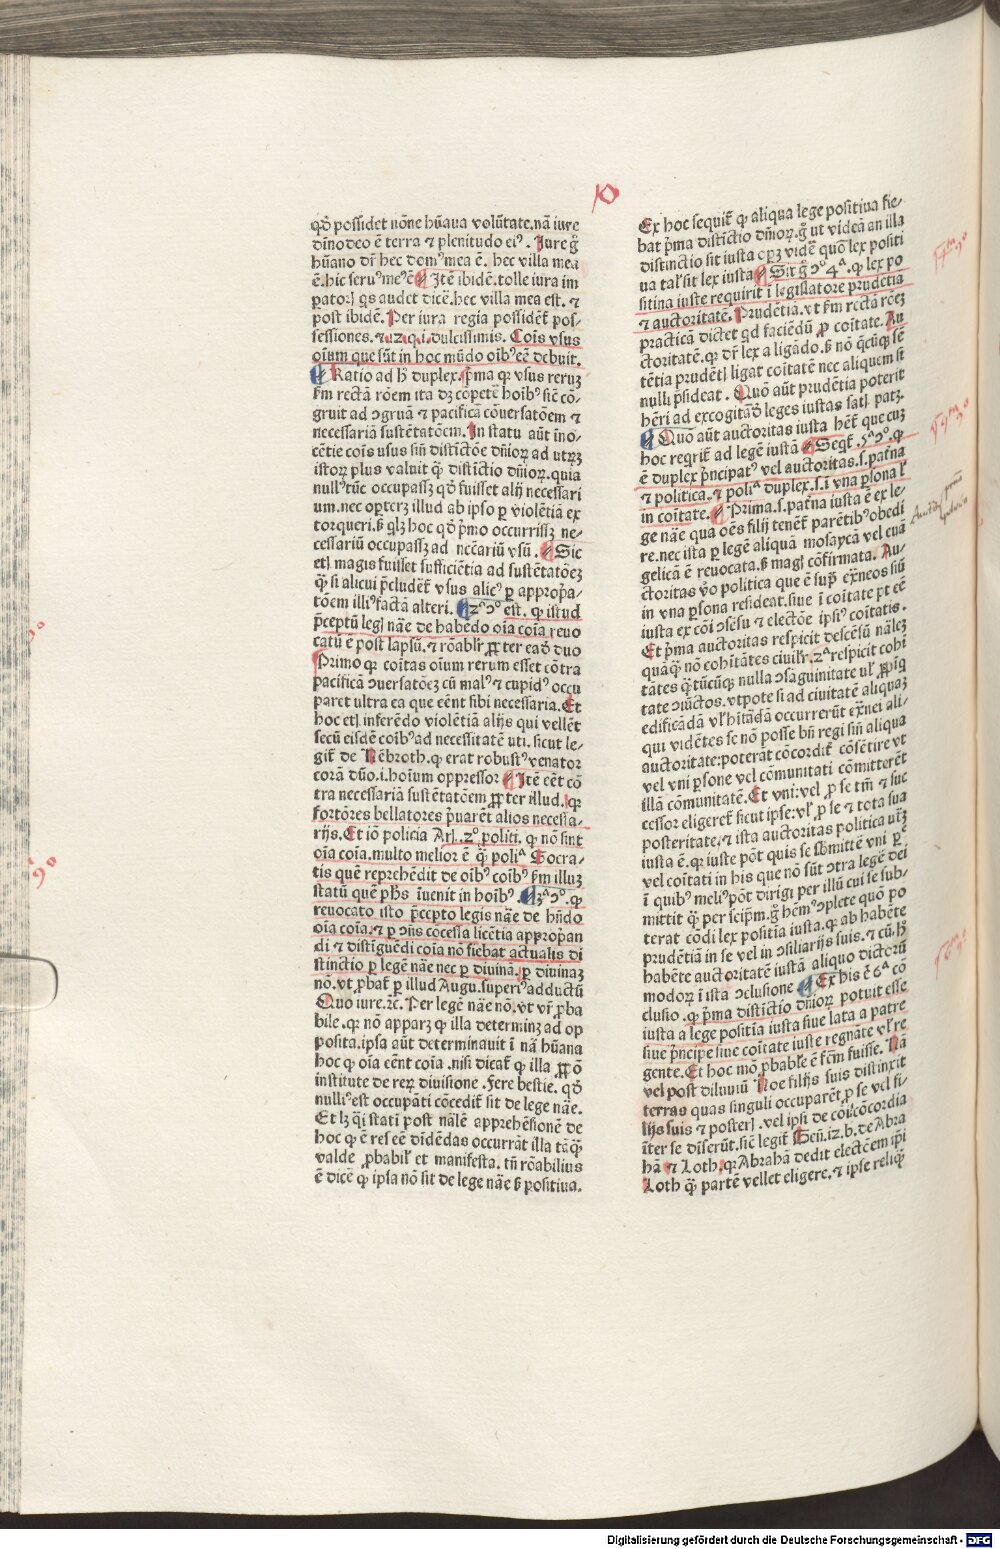 qđ possidet nōne hūana volūtate. nā iure
diūno deo ē terra ⁊ plenitudo eiꝰ. Iure gͦ
hūano dr̄ hec domꝰ mea ē. hec villa mea
ē. hic seruꝰ meꝰ ē ¶ Itē ibidē. tolle iura im
patoꝝ qs audet dicē. hec villa mea est. ⁊
post ibidē. Per iura regia possidēt pos-
sessiones. ⁊ .iz. q. i. dulcissimis. Cōis vsus
oīum que sūt in hoc mūdo oībꝰ eē debuit.
¶ Ratio ad hͦ duplex. pͥma qꝛ vsus rerum
fm rectā rōem ita dꝫ cōpetē hoībꝰ sic̄ cō-
gruit ad ꝯgruā ⁊ pacificā cōuersatōem ⁊
necessariā sustētatōem. In statu aūt ino-
cētie cois vsus siñ distictōe dñioꝝ ad utrꝫ
istoꝝ plus valuit qͣ distictio dñioꝝ. quia
nullꝰ tūc occupassꝫ qđ fuisset alij necessari
um. nec oꝑterꝫ illud ab ipso ꝑ violētiā ex
torqueri. ß qlꝫ hoc qđ pͥmo occurrissꝫ ne-
cessariū occupassꝫ ad necc̄ariū vsū. ¶ Sic
etꝫ magis fuisset sufficiētia ad sustētatōeꝫ
qͣ si alicui p̄cludet̄ vsus alicꝰ ꝑ appropͥa-
tōem illiꝰ factā alteri. ¶ 2ᵃ ꝯᵒ est. ꝙ istud
p̄ceptū legꝫ nāe de habēdo oīa coīa reuo
catū ē post lapsū. ⁊ rōabilr ꝓpter eađ duo
Primo qꝛ coītas oīum rerum esset cōtra
pacificā ꝯuersatōeꝫ cū malꝰ ⁊ cupidꝰ occu
paret ultra ea que eēnt sibi necessaria. Et
hoc etꝫ inferēdo violētiā alijs qui vellēt
secū eisdē coībꝰ ad necessitatē uti. sicut le-
git̄ de Nēbroth. ꝙ erat robustꝰ venator
corā dño. i. hoīum oppressor ¶ Itē eēt cō
tra necessariā sustētatōem ꝓpter illud. qꝛ
fortōres bellatores pͥuarēt alios necessa-
rijs. Et iō policia Arl. 2ᵒ politi. ꝙ nō sint
oīa coīa. multo melior ē qͣ poliᵃ Socra-
tis quē reprehēdit de oībꝰ coībꝰ fm illuꝫ
statū quē phs iuenit in hoībꝰ. ¶ 3ᵃ ꝯᵒ. ꝙ
reuocato isto p̄cepto legis nāe de hñdo
oīa coīa. ⁊ ꝑ ꝯñs cōcessa licētia appropͥan
di ⁊ distiguēdi coīa nō fiebat actualis di
stinctio ꝑ legē nāe nec ꝑ diuina. ꝑ diuinaꝫ
nō. vt ꝓbat̄ ꝑ illud Augu. superiꝰ adductū
Quo iure. ⁊c. Per legē nāe nō. vt vr̄ ꝓba
bile. qꝛ nō apparꝫ ꝙ illa determinꝫ ad op
posita. ipsa aūt determinauit ī nā hūana
hoc ꝙ oīa eēnt coīa. nisi dicat̄ ꝙ illa ꝓꝓō
institute de reꝝ diuisione. Fere bestie. qđ
nulliꝰ est occupāti cōcedit̄. sit de lege nāe.
Et lꝫ qͥ statī post nālē apprehēsionē de
hoc ꝙ ē res eē dīdēdas occurrāt illa tāqͣ
valde ꝓbabilʼ et manifesta. tñ rōabilius
ē dicē ꝙ ipsa nō sit de lege nāe ß positiua.
Ex hoc sequit̄ ꝙ aliqua lege positiua fie-
bat pͥma distictio dñioꝝ. gͦ ut videā an illa
distinctio sit iusta oꝑꝫ vidē quō lex positi
ua talʼ sit lex iusta ¶ Sit gͦ ꝯᵒ 4ᵃ. ꝙ lex po
sitiua iuste requirit ī legislatore prudētia
⁊ auctoritatē. Prudētiā. vt fm rectā rōeꝫ
practicā dictet qd faciēdū ꝓ coītate. Au
ctoritatē. qꝛ dr̄ lex a ligādo. ß nō qͥcūqꝫ sē
tētia prudētꝫ ligat coītatē nec aliquem si
nulli p̄sideat. Quō aūt prudētia poterit
hēri ad excogitāđ leges iustas satꝫ patꝫ.
¶ Quō aūt auctoritas iusta hēt̄ que cuꝫ
hoc reqͥrit̄ ad legē iustā ¶ Seqt̄ 5ᵃ ꝯᵒ. ꝙ
ē duplex pͥncipatꝰ vel auctoritas. s. pat̄na
⁊ politica. ⁊ poliᵃ duplex. s. ī vna ꝑsona lʼ
in coītate. ¶ Prima. s. pat̄na iusta ē ex le-
ge nāe qua oēs filij tenēt̄ parētibꝰ obedi
re. nec ista ꝑ legē aliquā mosaycā vel euā
gelicā ē reuocata. ß magꝫ cōfirmata. Au-
ctoritas v̄o politica que ē supͣ exͣneos siū
in vna ꝑsona resideat. siue ī coītate pt eē
iusta ex cōi ꝯsēsu ⁊ electōe ipsiꝰ coītatis.
Et pͥma auctoritas respicit descēsū nāleꝫ
quāqͣ nō cohītātes ciuilrʼ. 2ᵃ respicit cohī
tātes qͣtūcūqꝫ nulla ꝯsāguinitate ulʼ ꝓpīq
tate ꝯiūctos. vtpote si ad ciuitatē aliquaꝫ
edificādā vlʼ hītādā occurrerūt exͣnei ali-
qui vidētes se nō posse bñ regi siñ aliqua
auctoritate: poterāt cōcordit̄ cōsētire vt
vel vni ꝑsone vel cōmunitati cōmitterēt
illā cōmunitatē. Et vni: vel ꝓ se tm̄ ⁊ suc
cessor eligeret̄ sicut ipse: vlʼ ꝓ se ⁊ tota sua
posteritate. ⁊ ista auctoritas politica utꝝ
iusta ē. qꝛ iuste pōt quis se sbmittē vni ꝑe
vel coītati in his que nō sūt ꝯtra legē dei
ī quibꝰ meliꝰ pōt dirigi per illū cui se sub-
mittit qͣ per seipm̄. gͦ hēmꝰ ꝯplete quō po
terat cōdi lex positiā iusta. qꝛ ab habēte
prudētiā in se vel in ꝯsiliarijs suis. ⁊ cū hͦ
habēte auctoritatē iustā aliquo dictorū
modoꝝ ī ista ꝯclusione ¶ Ex his ē 6ᵃ cō
clusio. ꝙ pͥma distictio dñioꝝ potuit esse
iusta a lege positiā iusta siue lata a patre
siue pͥncipe siue coītate iuste regnāte vlʼ re
gente. Et hoc mō ꝓbablʼe ē fcm̄ fuisse. Nā
vel post diluuiū Noe filijs suis distinxit
terras quas singuli occuparēt ꝓ se vel fi-
lijs suis ⁊ posterꝫ. vel ipsi de cōi cōcordia
īter se diuserūt. sic̄ legit̄ Geñ. iz. b. de Abra
hā ⁊ Loth. qꝛ Abrahā dedit electōem ipi
Loth qͣ partē vellet eligere. ⁊ ipse reliqͣ
Digitalisierung gefördert durch die Deutsche Forschungsgemeinschaft - DFG